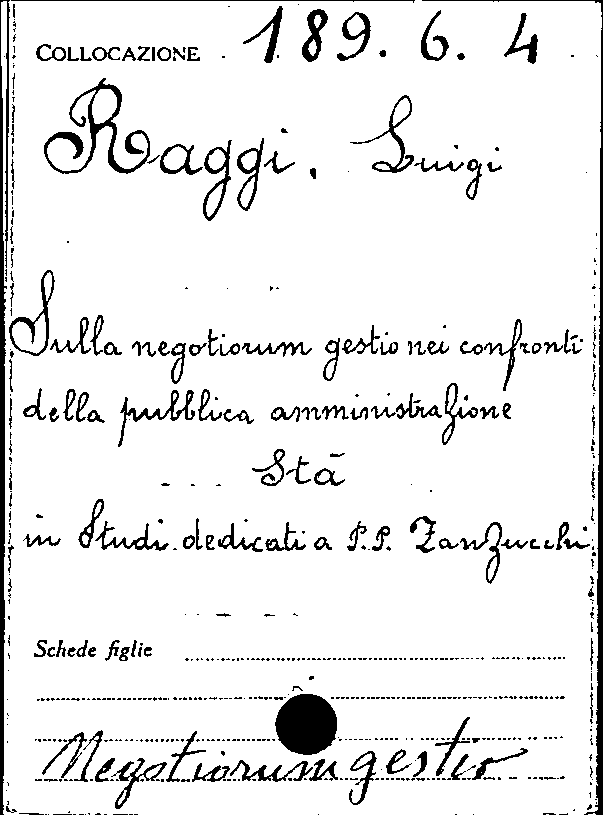 COLLOCAZIONE 189. 6. 4
Raggi, Luigi
Sulla negotiorum gestio nei confronti
della pubblica amministrazione
Stà
in Studi dedicati a P.P. Zanzucchi
Schede figlie
Negotiorum gestio